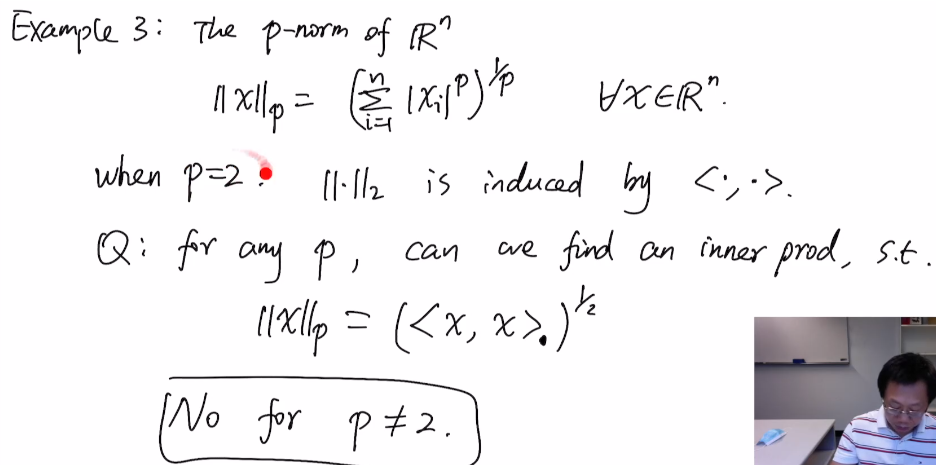 Example 3: The p-norm of ℝⁿ
||x||ₚ = (∑ⁿᵢ₌₁ |xᵢ|ᵖ)^{1/p} ∀x∈ℝⁿ.
when p=2. ||·||₂ is induced by <·,·>.
Q: for any p, can we find an inner prod, s.t.
||x||ₚ = (<x, x>.)^{1/2}
No for p ≠ 2.